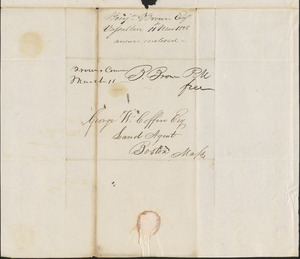 Benj. Brown Esq
Vassalboro 11 Mar 1835
answer enclosed
Browns Corner
March 11
B. Brown PM
free
George W. Coffin Esq
Land Agent
Boston
Mass